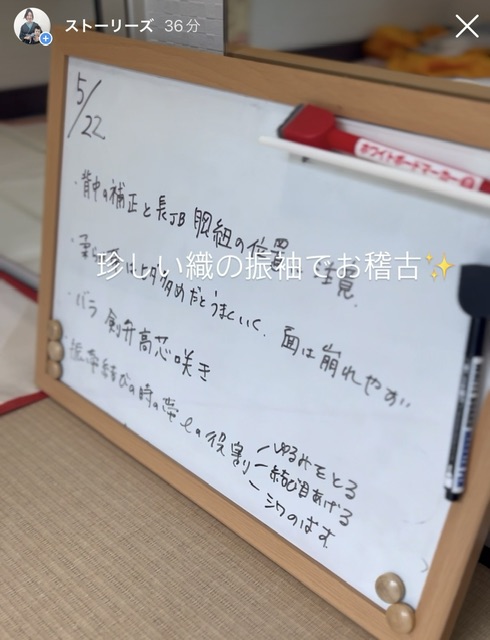 ストーリーズ 36分
5/22
ホワイトボードマーカー
・背中の補正と長JB 胸紐の位置 注意.
珍しい織の振袖でお稽古✨
・柔ら はヒダ多めだとうまくいく. 面は崩れやすい
・バラ 剣弁高芯咲き
・振帯結びの時の帯 の役割
ゆるみをとる
結び目あげる
シワのばす